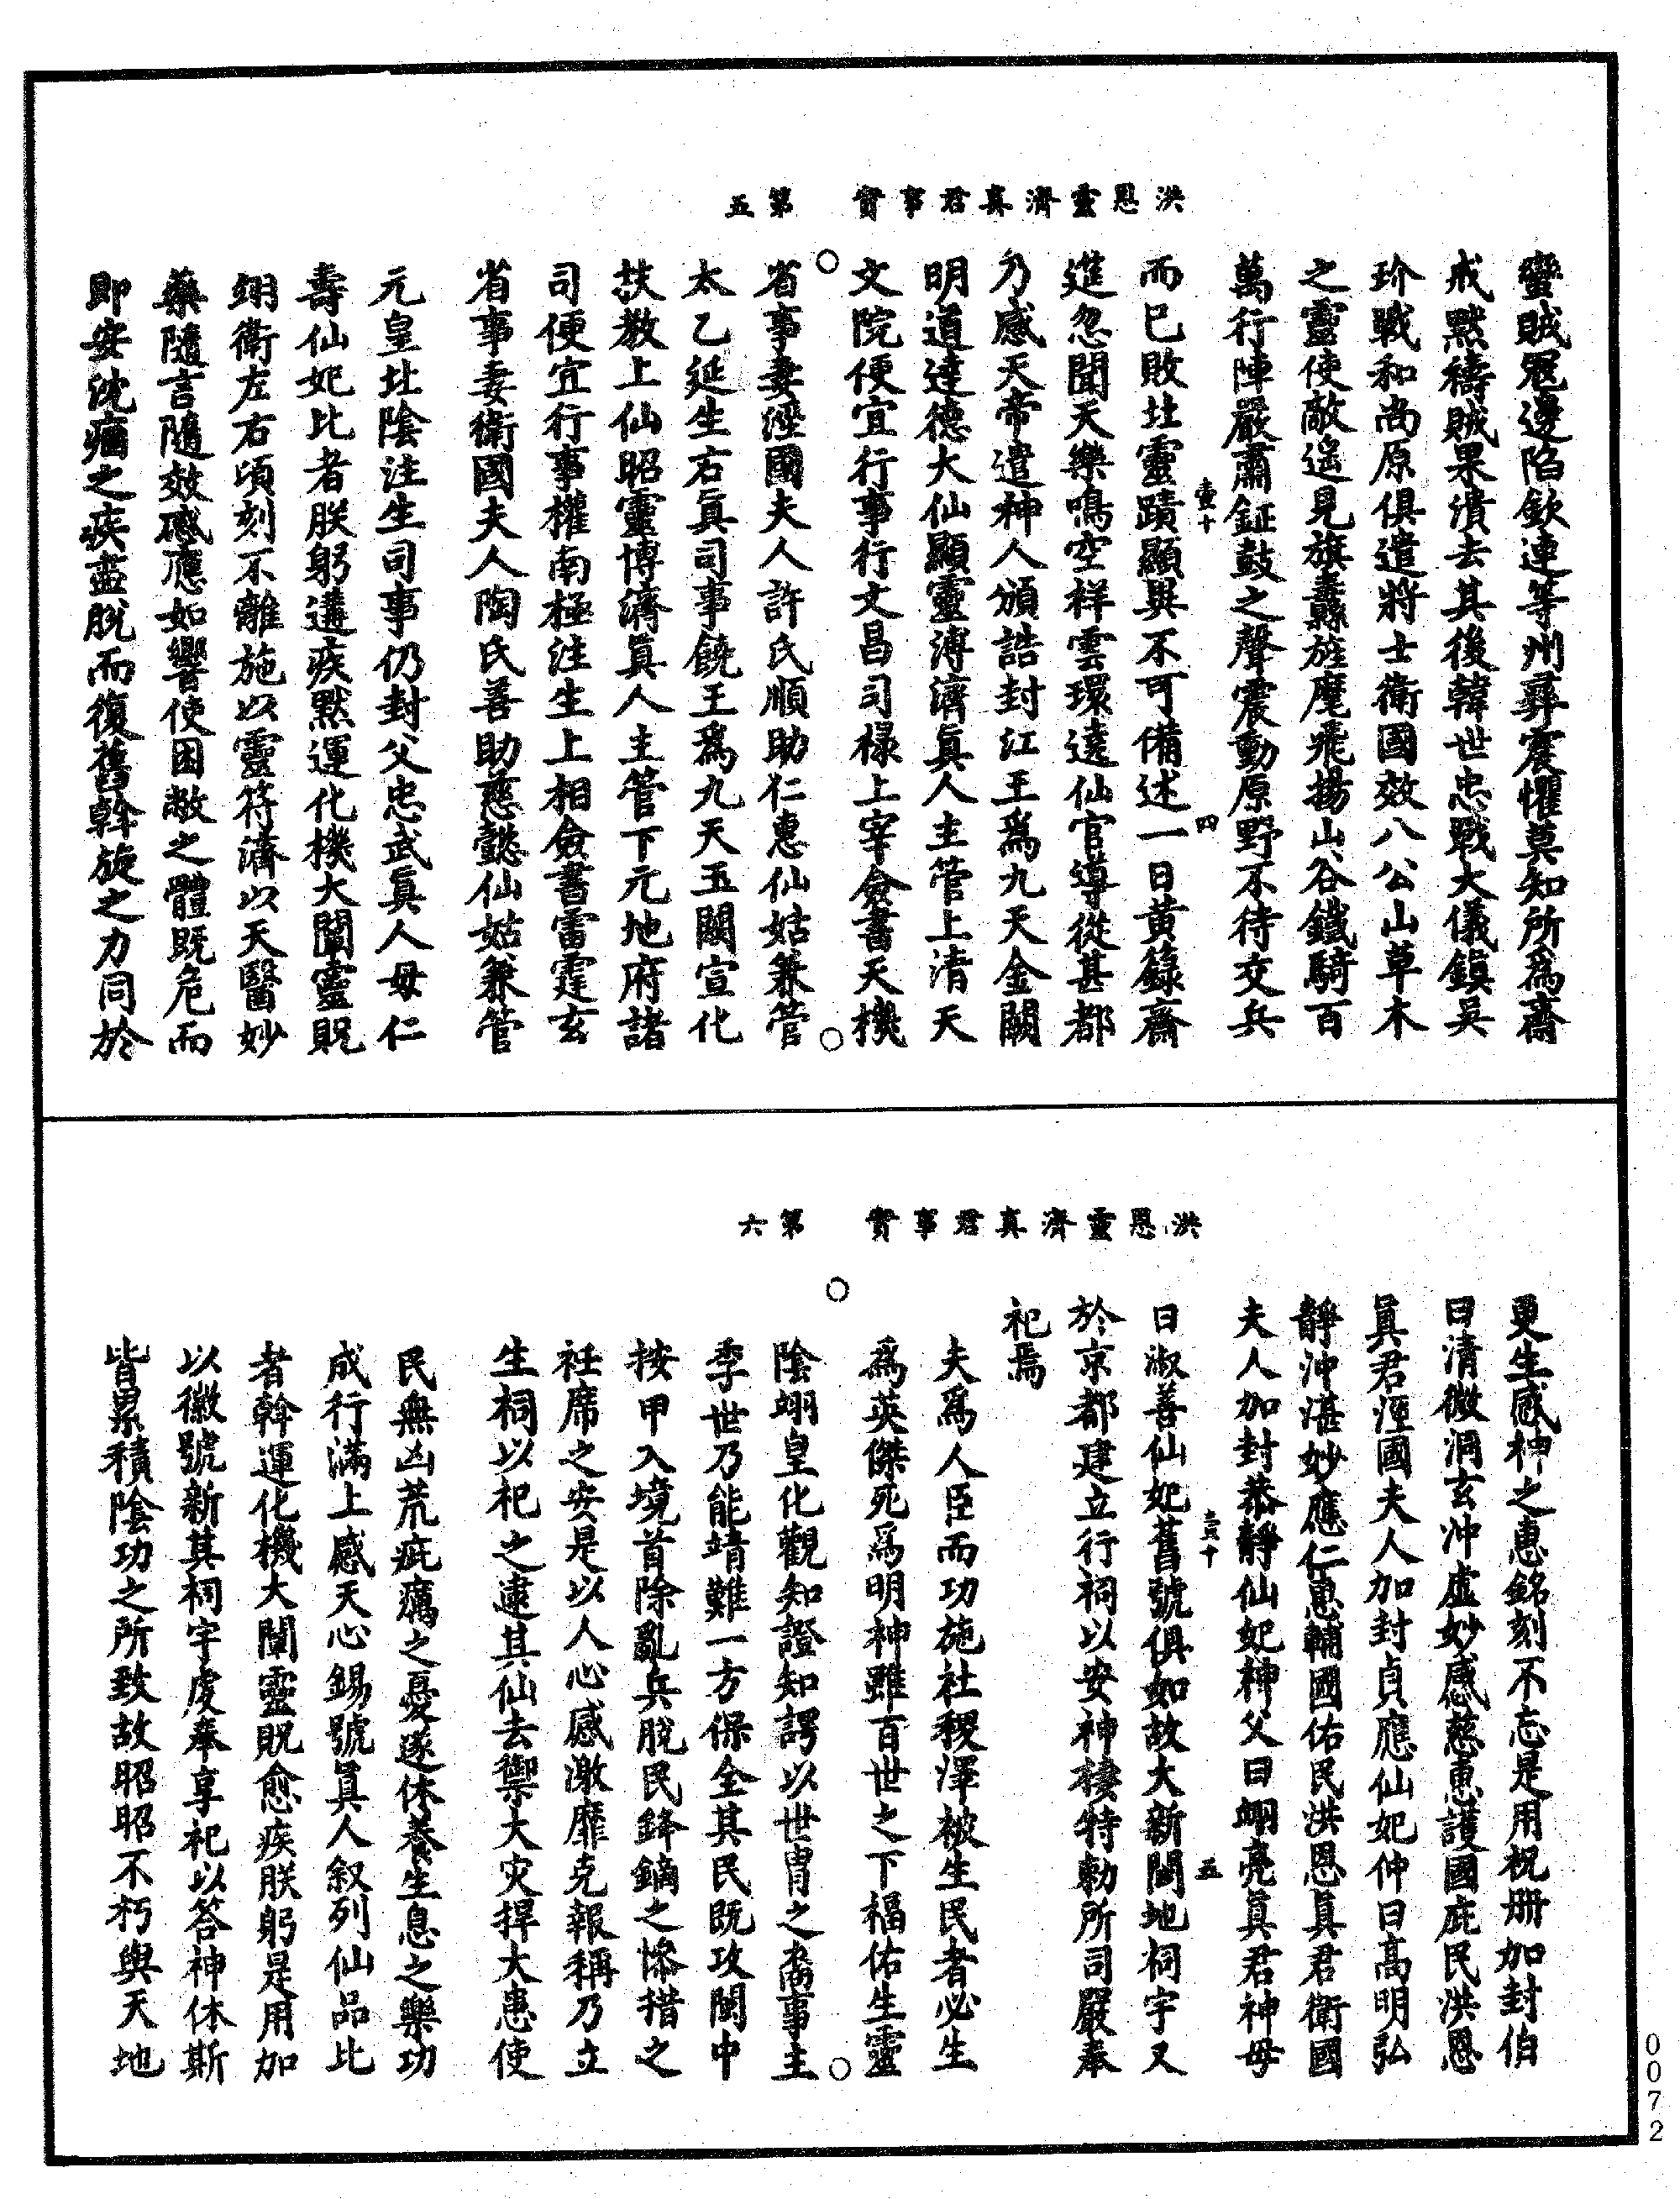 洪恩靈濟真君事實　第五
蠻賊寇邊陷欽連等州彞震懼莫知所爲齋
戒黙禱賊果潰去其後韓世忠戰大儀鎮吳
玠戰和尚原俱遣將士衛國效八公山草木
之靈使敵遙見旗纛旌麾飛揚山谷鐵騎百
萬行陣嚴肅鉦鼓之聲震動原野不待交兵
壹十　四
而已敗玆靈蹟顯異不可備述一日黃籙齋
進忽聞天樂鳴空祥雲環遶仙官導從甚都
乃感天帝遣神人頒誥封江王爲九天金闕
明道達德大仙顯靈溥濟真人主管上清天
文院便宜行事行文昌司祿上宰僉書天機
省事妻溼國夫人許氏順助仁惠仙姑兼管
太乙延生右真司事饒王爲九天玉闕宣化
扶教上仙昭靈博濟真人主管下元地府諸
司便宜行事權南極注生上相僉書雷霆玄
省事妻衛國夫人陶氏善助慈懿仙姑兼管
元皇玆陰注生司事仍封父忠武真人母仁
壽仙妃比者朕躬遘疾黙運化機大闡靈貺
翊衛左右頃刻不離施以靈符濟以天醫妙
藥隨言隨效感應如響使困敝之體既危而
即安沈痼之疾盡脫而復舊斡旋之力同於
洪恩靈濟真君事實　第六
更生感神之惠銘刻不忘是用祝册加封伯
曰清微洞玄冲虛妙感慈惠護國庇民洪恩
真君溼國夫人加封貞應仙妃仲曰高明弘
靜沖湛妙應仁惠輔國佑民洪恩真君衛國
夫人加封恭靜仙妃神父曰翊亮真君神母
壹十　五
曰淑善仙妃舊號俱如故大新閩地祠宇又
於京都建立行祠以安神棲特勑所司嚴奉
祀焉
夫爲人臣而功施社稷澤被生民者必生
爲英傑死爲明神雖百世之下福佑生靈
陰翊皇化觀知證知諤以世胄之裔事主
李世乃能靖難一方保全其民既攻閩中
按甲入境首除亂兵脫民鋒鏑之慘措之
衽席之安是以人心感激靡克報稱乃立
生祠以祀之逮其仙去禦大灾捍大患使
民無凶荒疵癘之憂遂休養生息之樂功
成行滿上感天心錫號真人叙列仙品比
者斡運化機大闡靈貺愈疾朕躬是用加
以徽號新其祠宇虔奉享祀以答神休斯
皆累積陰功之所致故昭昭不朽與天地
0072